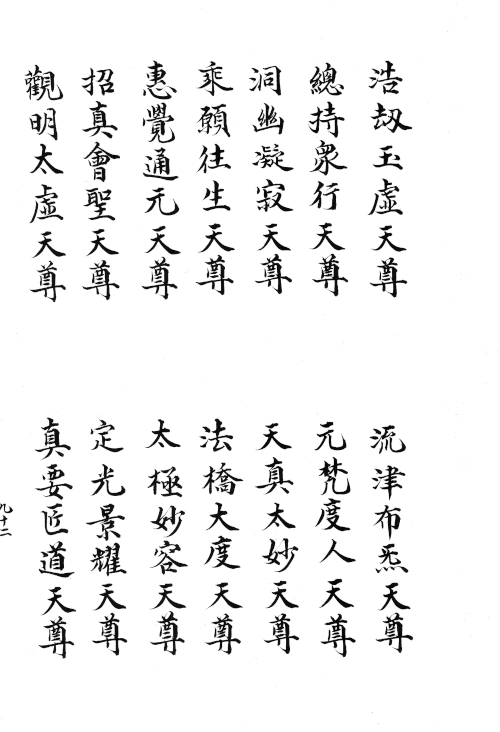 浩刼玉虛天尊
流津布炁天尊
總持衆行天尊
元梵度人天尊
洞幽凝寂天尊
天真太妙天尊
乘願往生天尊
法橋大度天尊
惠覺通元天尊
太極妙容天尊
招真會聖天尊
定光景耀天尊
觀明太虛天尊
真要匠道天尊
九十二